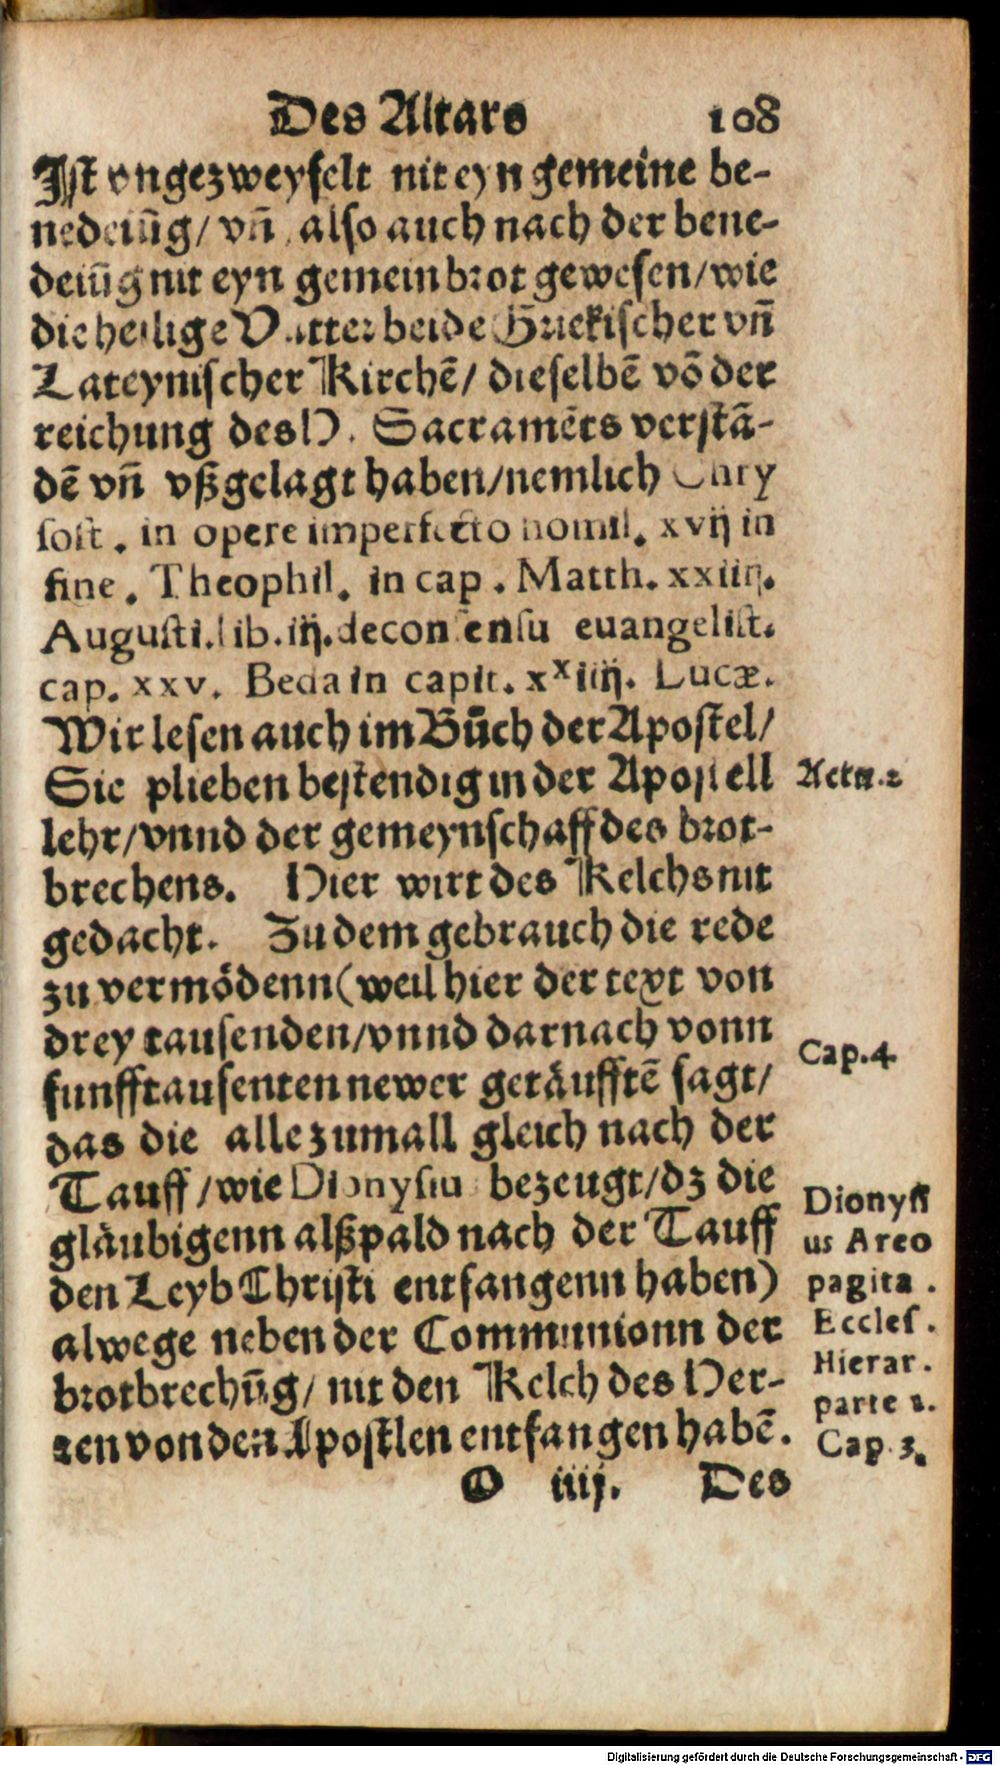 Des Altars 108
Ist vngezweyfelt nit eyn gemeine be-
nedeiūg/ vñ also auch nach der bene-
deiūg nit eyn gemein brot gewesen/wie
die heilige Vatter beide Griekischer vñ
Lateynischer Kirchē/ dieselbē vō der
reichung des H. Sacramēts verstā-
dē vñ vßgelagt haben/nemlich Chry
sost. in opere imperfecto homil. xvij in
fine. Theophil. in cap. Matth. xxiiij.
Augusti. lib. iij. de consensu euangelist.
cap. xxv. Beda in capit. xxiiij. Lucæ.
Wir lesen auch im Bůch der Apostel/
Sie plieben bestendig in der Apostell
Acto. 2
lehr/vnnd der gemeynschaff des brot-
brechens. Hier wirt des Kelchs nit
gedacht. Zu dem gebrauch die rede
zu vermödenn(weil hier der text von
drey tausenden/vnnd darnach vonn
Cap. 4.
funfftausenten newer getäufftē sagt/
das die alle zumall gleich nach der
Tauff/wie Dionysiu bezeugt/dz die
gläubigenn alßpald nach der Tauff
den Leyb Christi entfangenn haben)
alwege neben der Communionn der
brotbrechūg/ nit den Kelch des Her-
ren von den Apostlen entfangen habē.
Dionysi
us Areo
pagita.
Eccles.
Hierar.
parte 2.
Cap. 3.
O iiij. Des
Digitalisierung gefördert durch die Deutsche Forschungsgemeinschaft - DFG